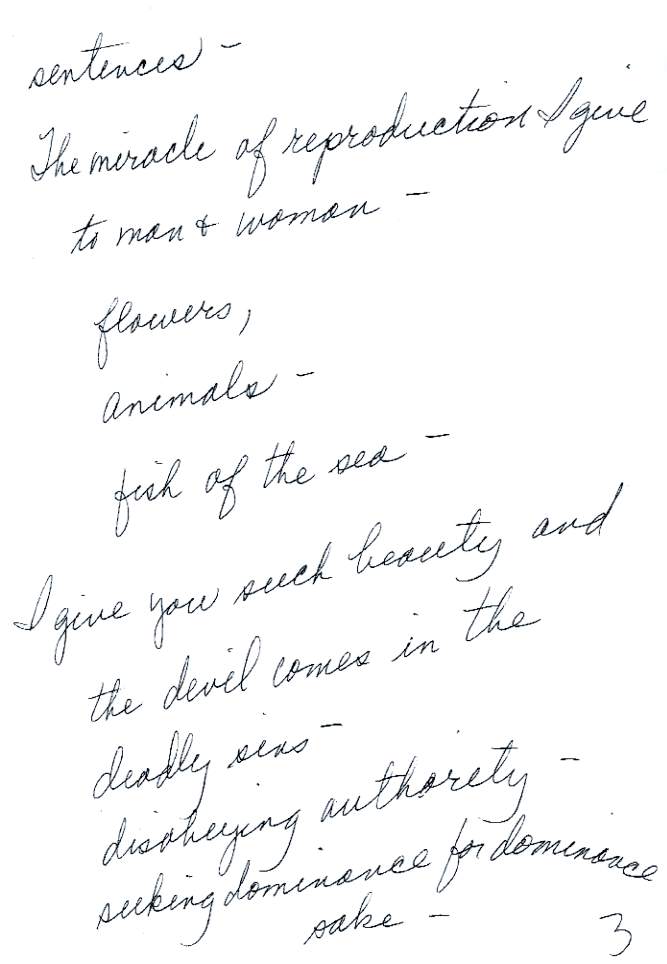 sentences –
The miracle of reproduction I give
to man & woman –
flowers,
animals –
fish of the sea –
I give you such beauty and
the devil comes in the
deadly sins –
disobeying authority –
seeking dominance for dominance
sake –
3